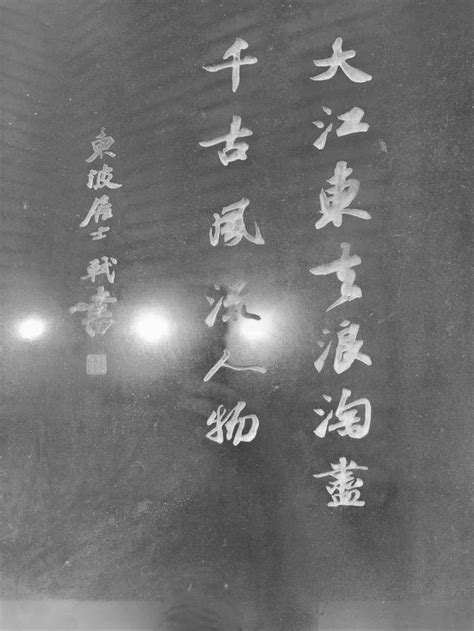 大江東去浪淘盡
千古風流人物
東坡居士軾書